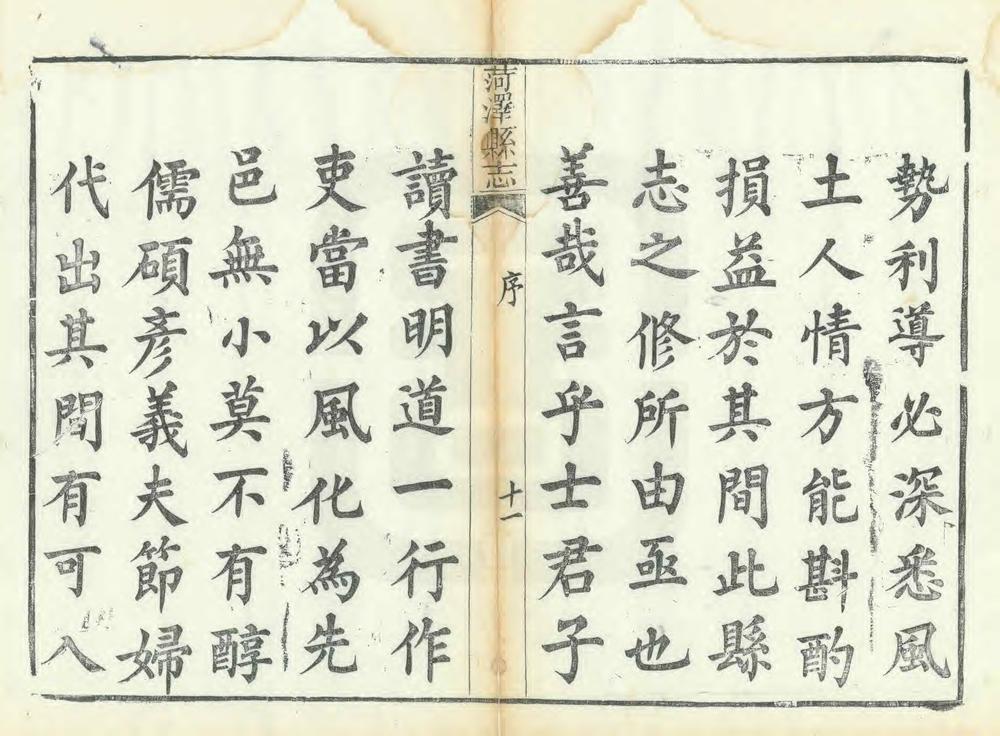 勢利導必深悉風
土人情方能斟酌
損益於其間此縣
志之修所由亟也
善哉言乎士君子
菏澤縣志
序
十一
讀書明道一行作
吏當以風化為先
邑無小莫不有醇
儒碩彥義夫節婦
代出其間有可入